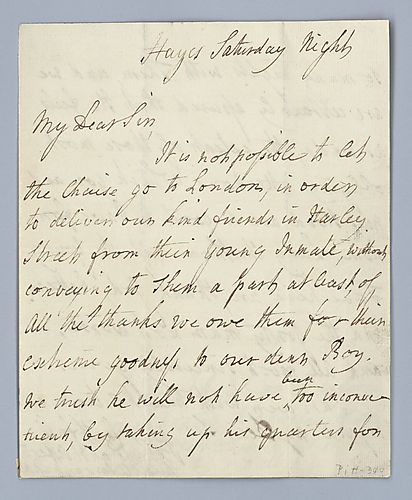 Hayes Saturday Night
My Dear Sir,
It is not possible to let
the Chaise go to London, in order
to deliver our kind friends in Harley
Street from their young Inmate, without
conveying to them a part at least, of
All the thanks we owe them for their
extreme goodness to our dear Boy.
we trust he will not have been too inconve-
nient, by taking up his quarters for